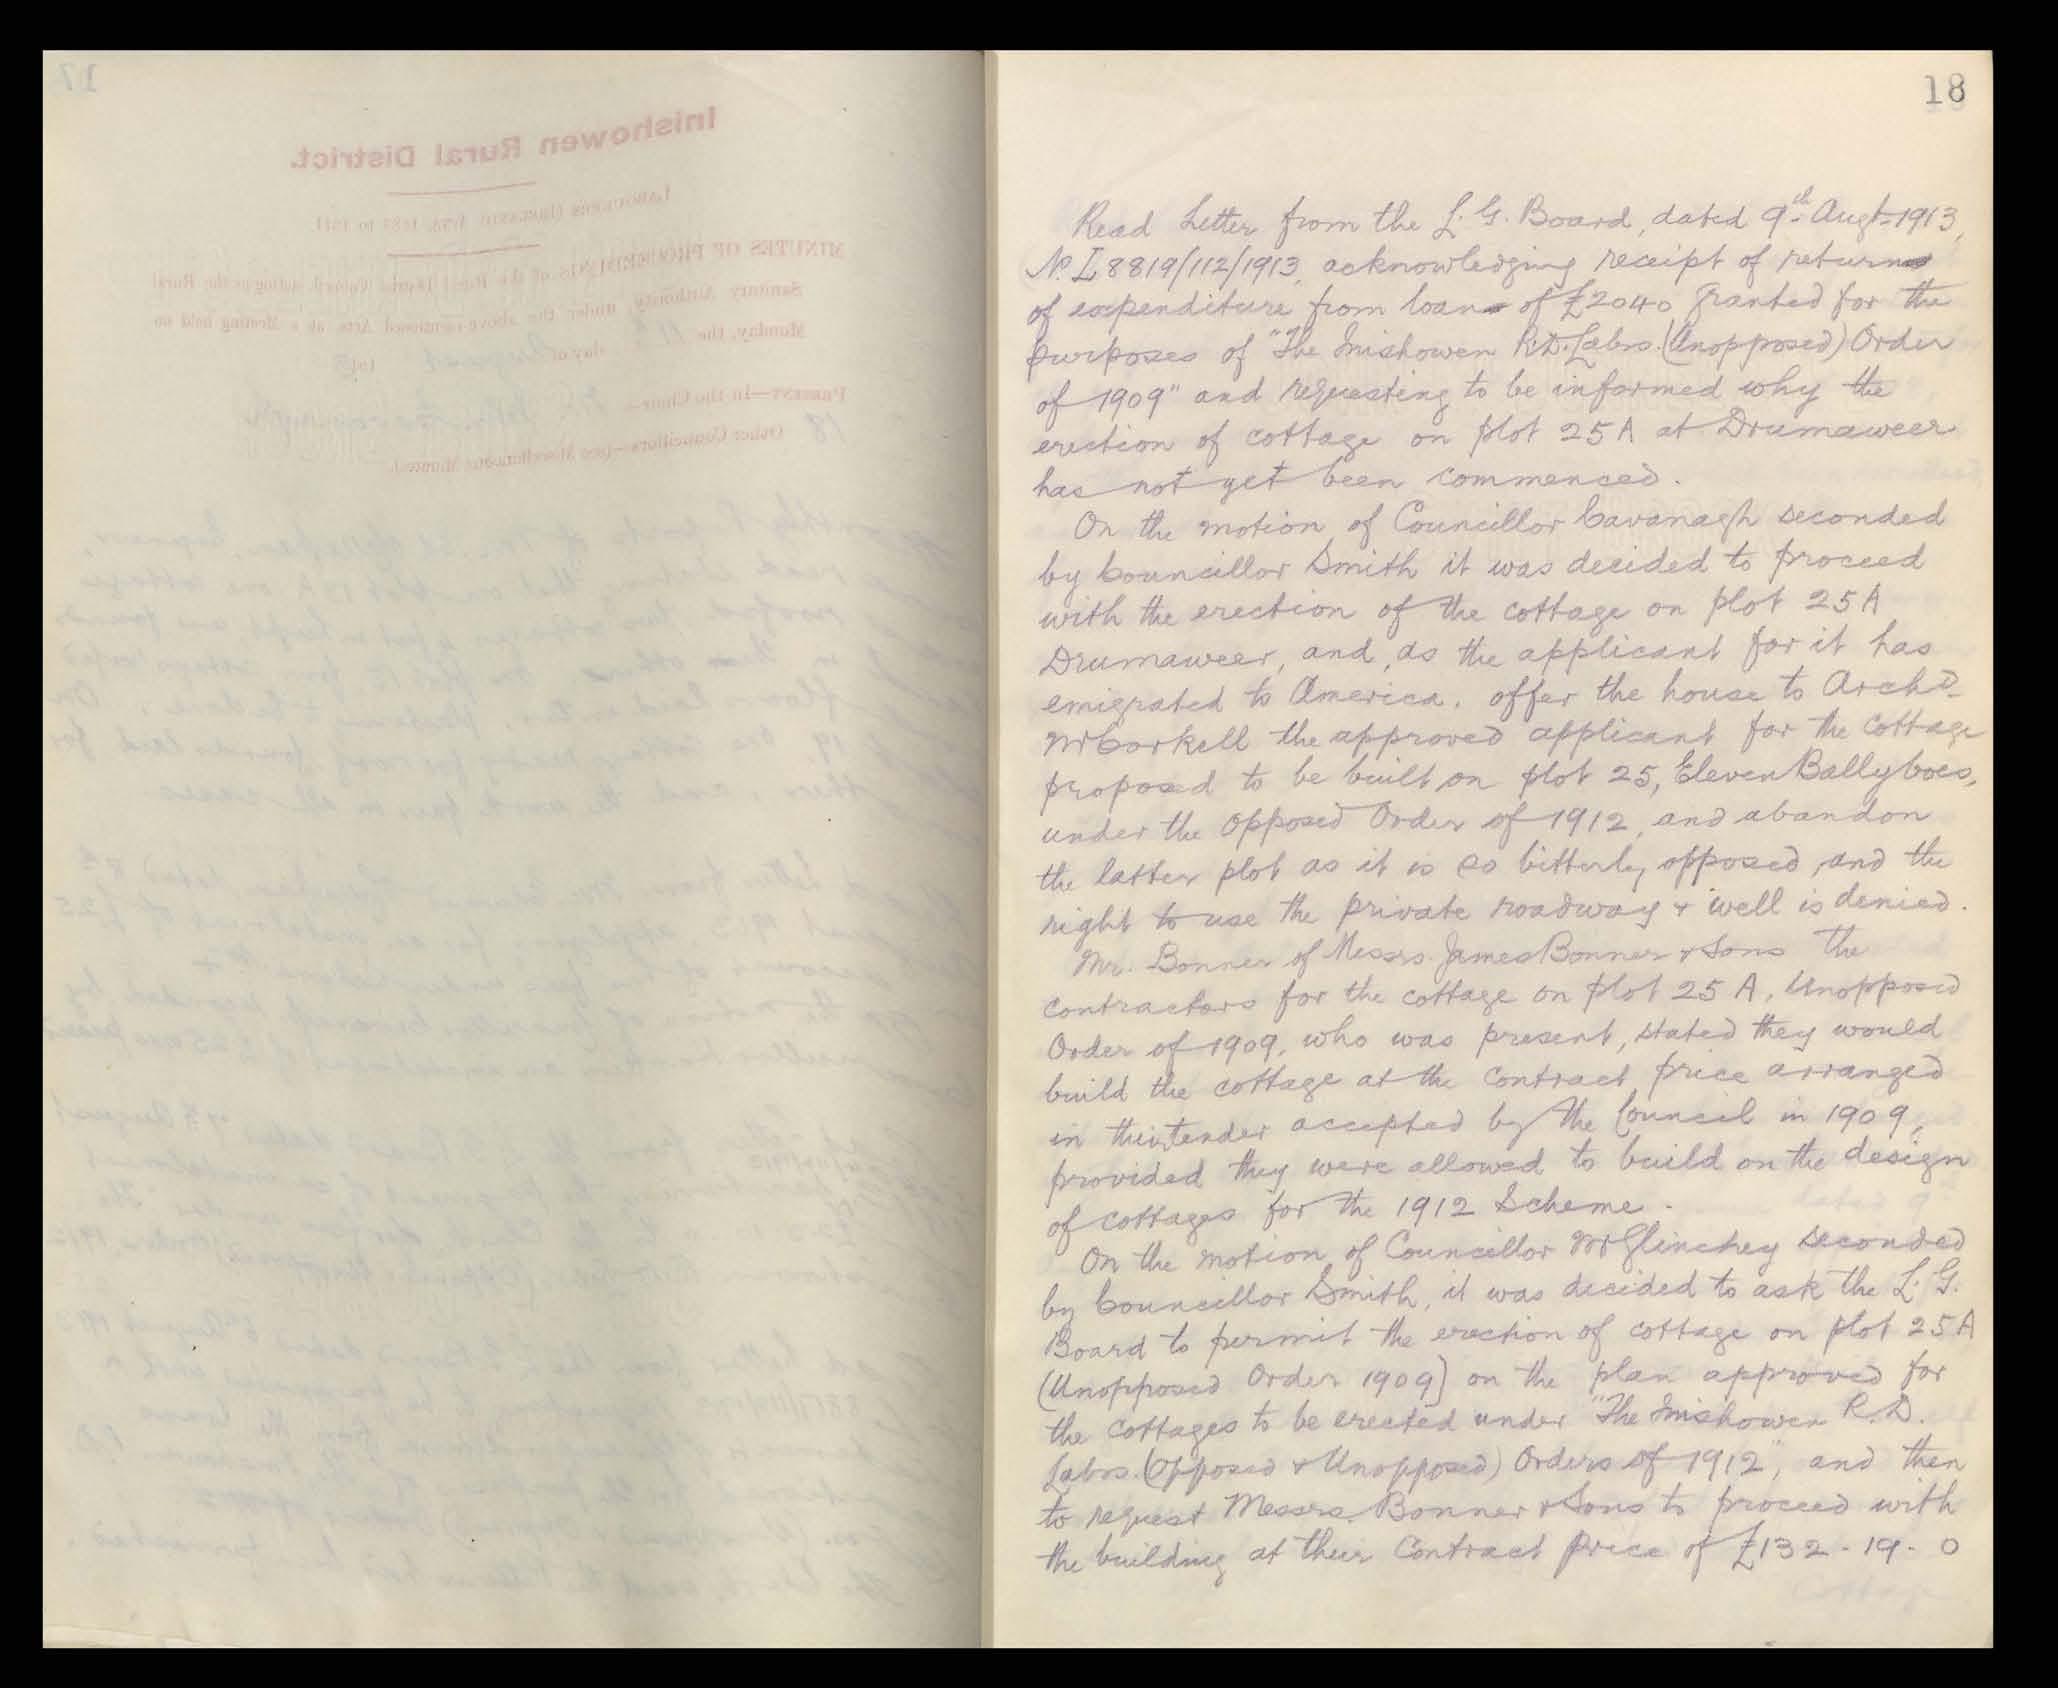 18
Read Letter from the L. G. Board, dated 9th Augt 1913,
No. L 8819/112/1913, acknowledging receipt of return
of expenditure from loan of £2040 granted for the
purposes of "The Inishowen R.D. Labrs. (Unopposed) Order
of 1909" and requesting to be informed why the
erection of cottage on plot 25A at Drumaweer
has not yet been commenced.
On the motion of Councillor Cavanagh seconded
by Councillor Smith it was decided to proceed
with the erection of the cottage on plot 25A
Drumaweer, and, as the applicant for it has
emigrated to America, offer the house to Archd.
McCorkell the approved applicant for the cottage
proposed to be built on plot 25, Eleven Ballyboes,
under the Opposed Order of 1912, and abandon
the latter plot as it is so bitterly opposed, and the
right to use the private roadway & well is denied.
Mr. Bonner of Messrs. James Bonner & Sons the
contractors for the cottage on plot 25 A, Unopposed
Order of 1909, who was present, stated they would
build the cottage at the contract price arranged
in their tender accepted by the Council in 1909,
provided they were allowed to build on the design
of cottages for the 1912 Scheme.
On the motion of Councillor McGlinchey seconded
by Councillor Smith, it was decided to ask the L. G.
Board to permit the erection of cottage on plot 25A
(Unopposed Order 1909) on the plan approved for
the cottages to be erected under "The Inishowen R.D.
Labrs. (Opposed & Unopposed) Orders of 1912", and then
to request Messrs. Bonner & Sons to proceed with
the building at their Contract price of £132-19-0